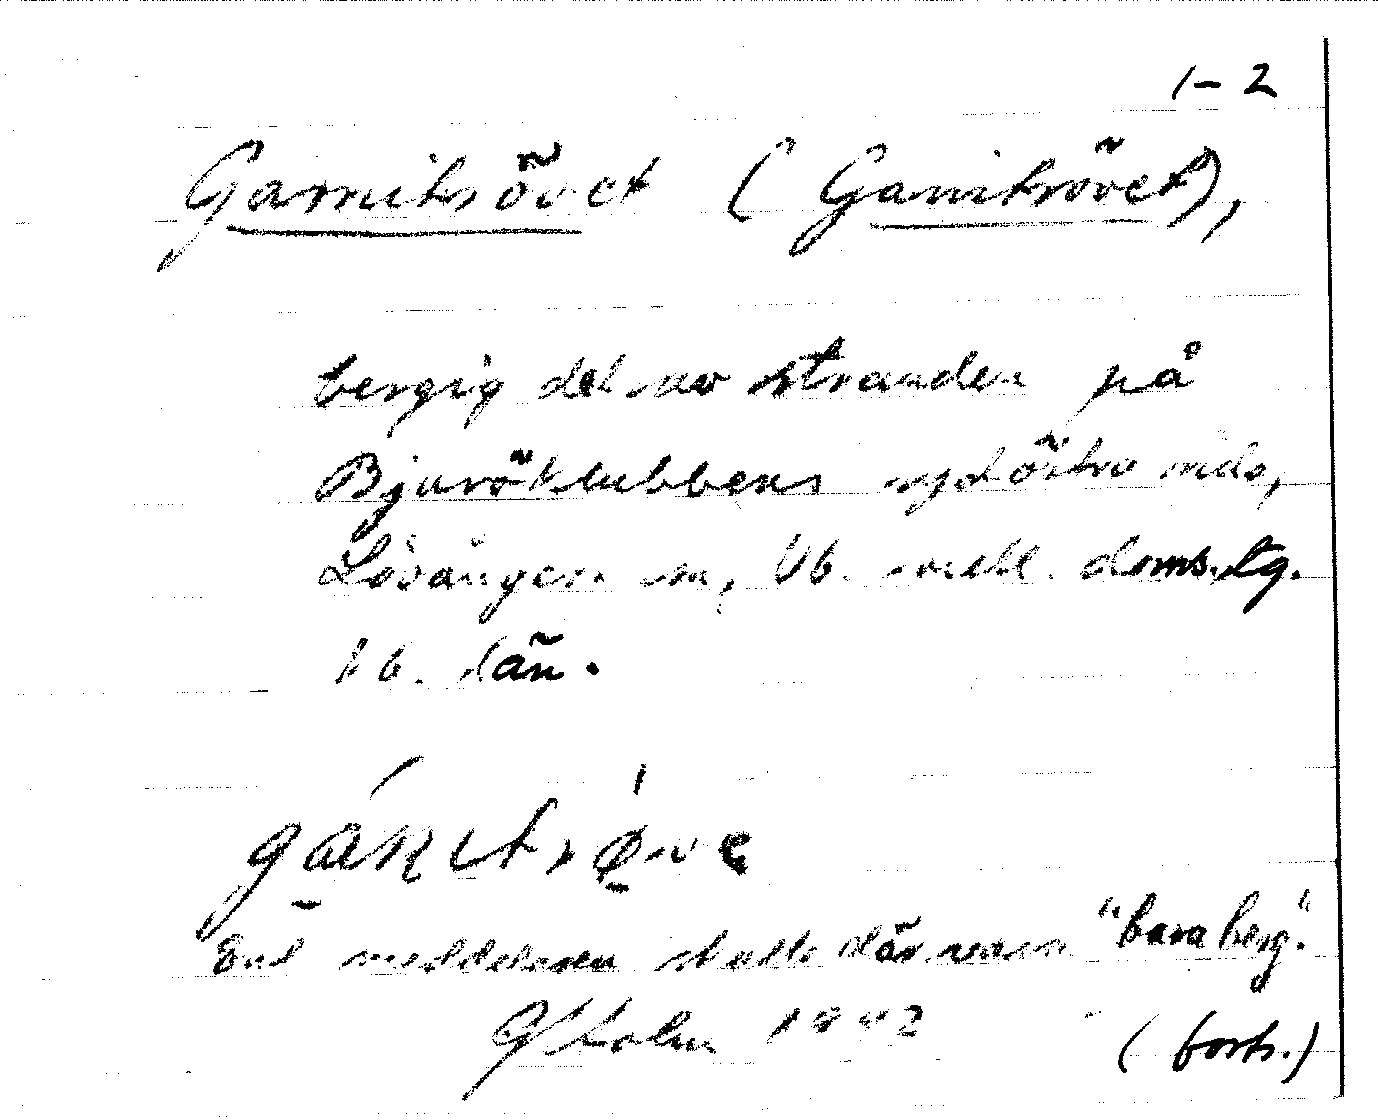 1-2
Garnitsövet (Ganitsövet),
bergig del av stranden på
Bjuröklubbens sydöstra sida,
Lövångers sn, Vb. västl. doms. tg.
Vb. län.
Enl meddelaren skall där vara "bara berg".
G Holm 1942
(forts.)